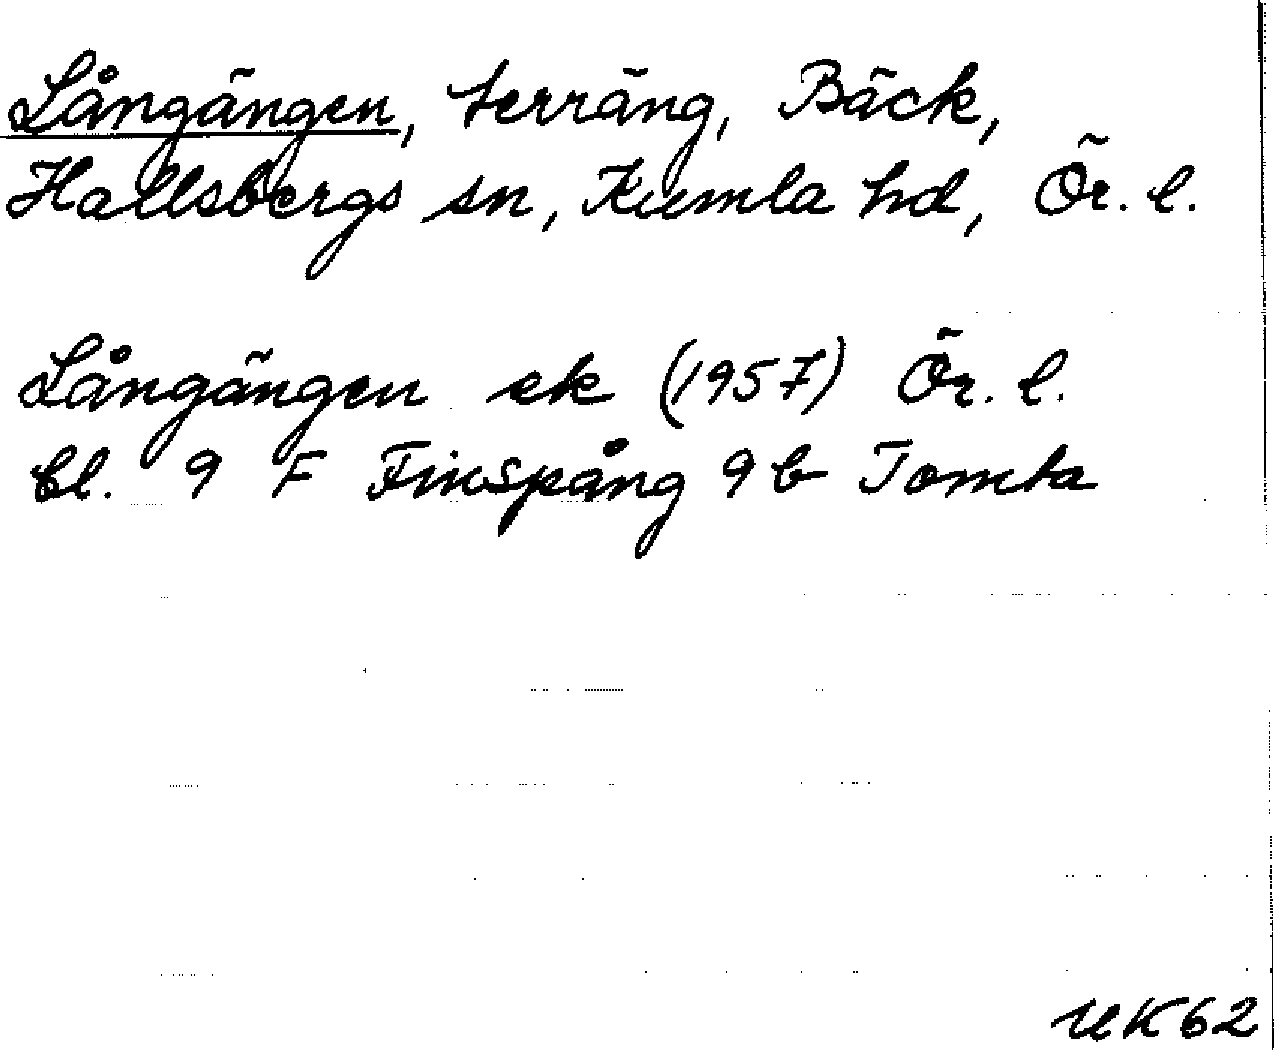 Långängen, terräng, Bäck,
Hallsbergs sn, Kumla hd, Ör. l.
Långängen ek (1957) Ör. l.
bl. 9 F Finspång 9 b Tomta
UK62